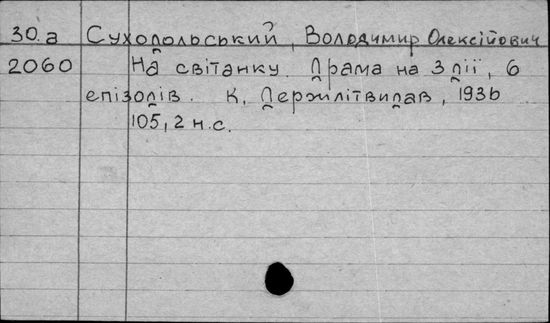 30.а Суходольський, Володимир Олексійович
2060 На світанку. Драма на 3 дії, 6
епізодів. К, Держлітвидав, 1936
105, 2 н.с.